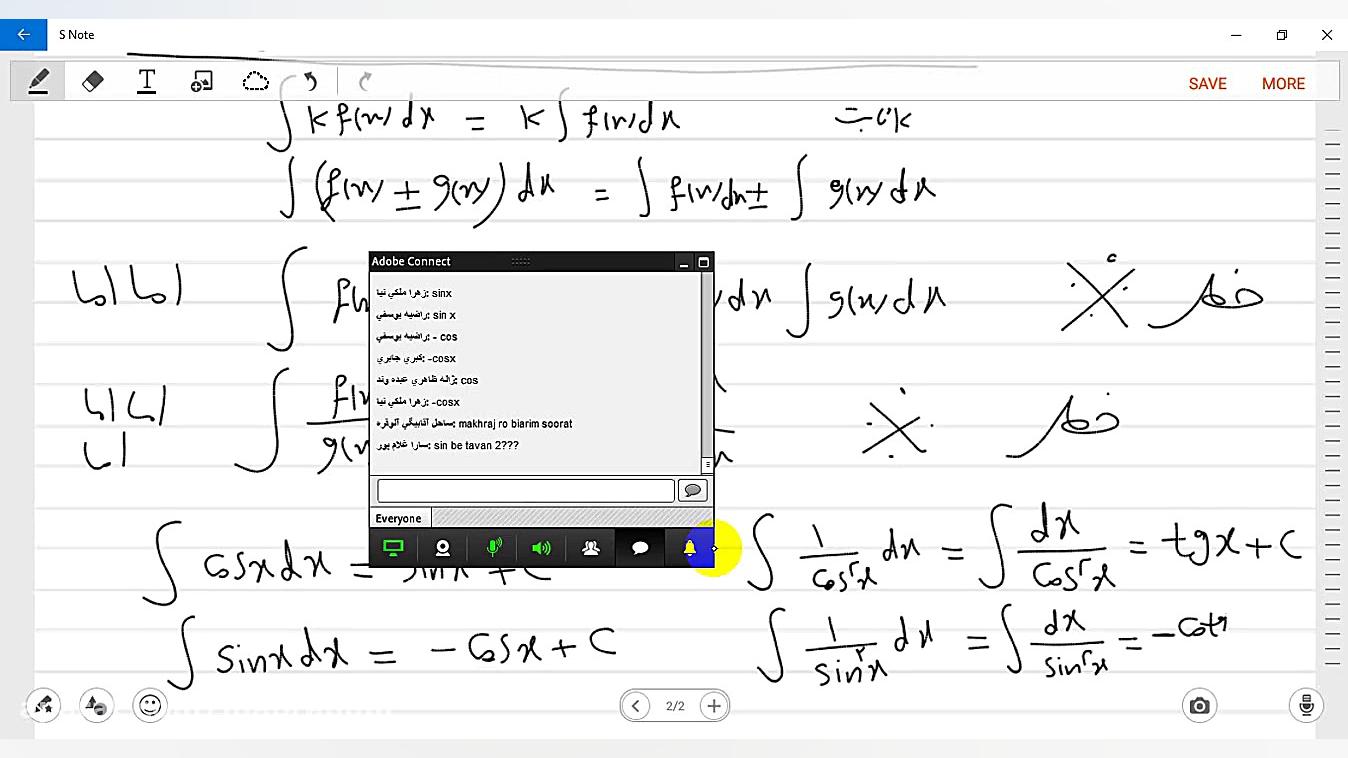 S Note
SAVE MORE
∫ k f(x) dx = k ∫ f(x) dx
∫ (f(x) ± g(x)) dx = ∫ f(x) dx ± ∫ g(x) dx
∫ f(x dx ∫ g(x) dx
Adobe Connect
زهرا ملكي نيا: sinx
راضيه يوسفي: sin x
راضيه يوسفي: - cos
كبري جابري: -cosx
ژاله طاهري عبده وند: cos
زهرا ملكي نيا: -cosx
ساحل آقابيگي آلوقره: makhraj ro biarim soorat
سارا غلام پور: sin be tavan 2???
Everyone
∫ f(x
g(x
∫ cosx dx = sinx + C
∫ 1/cos²x dx = ∫ dx/cos²x = tgx + C
∫ sinx dx = - cosx + C
∫ 1/sin²x dx = ∫ dx/sin²x = - cotx
2/2